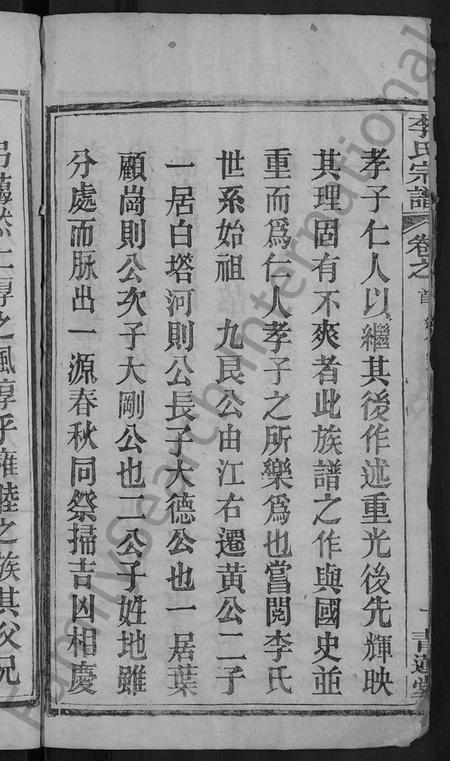 李氏宗譜
卷之首
孝子仁人以繼其後作述重光後先輝映
其理固有不爽者此族譜之作與國史並
重而爲仁人孝子之所樂爲也嘗閱李氏
世系始祖 九良公由江右遷黃公二子
一居白塔河則公長子大德公也一居葉
顧崗則公次子大剛公也二公子姓地雖
分處而脉出一源春秋同祭掃吉凶相慶
之風淳乎雍睦之族其父兄
FamilySearch International